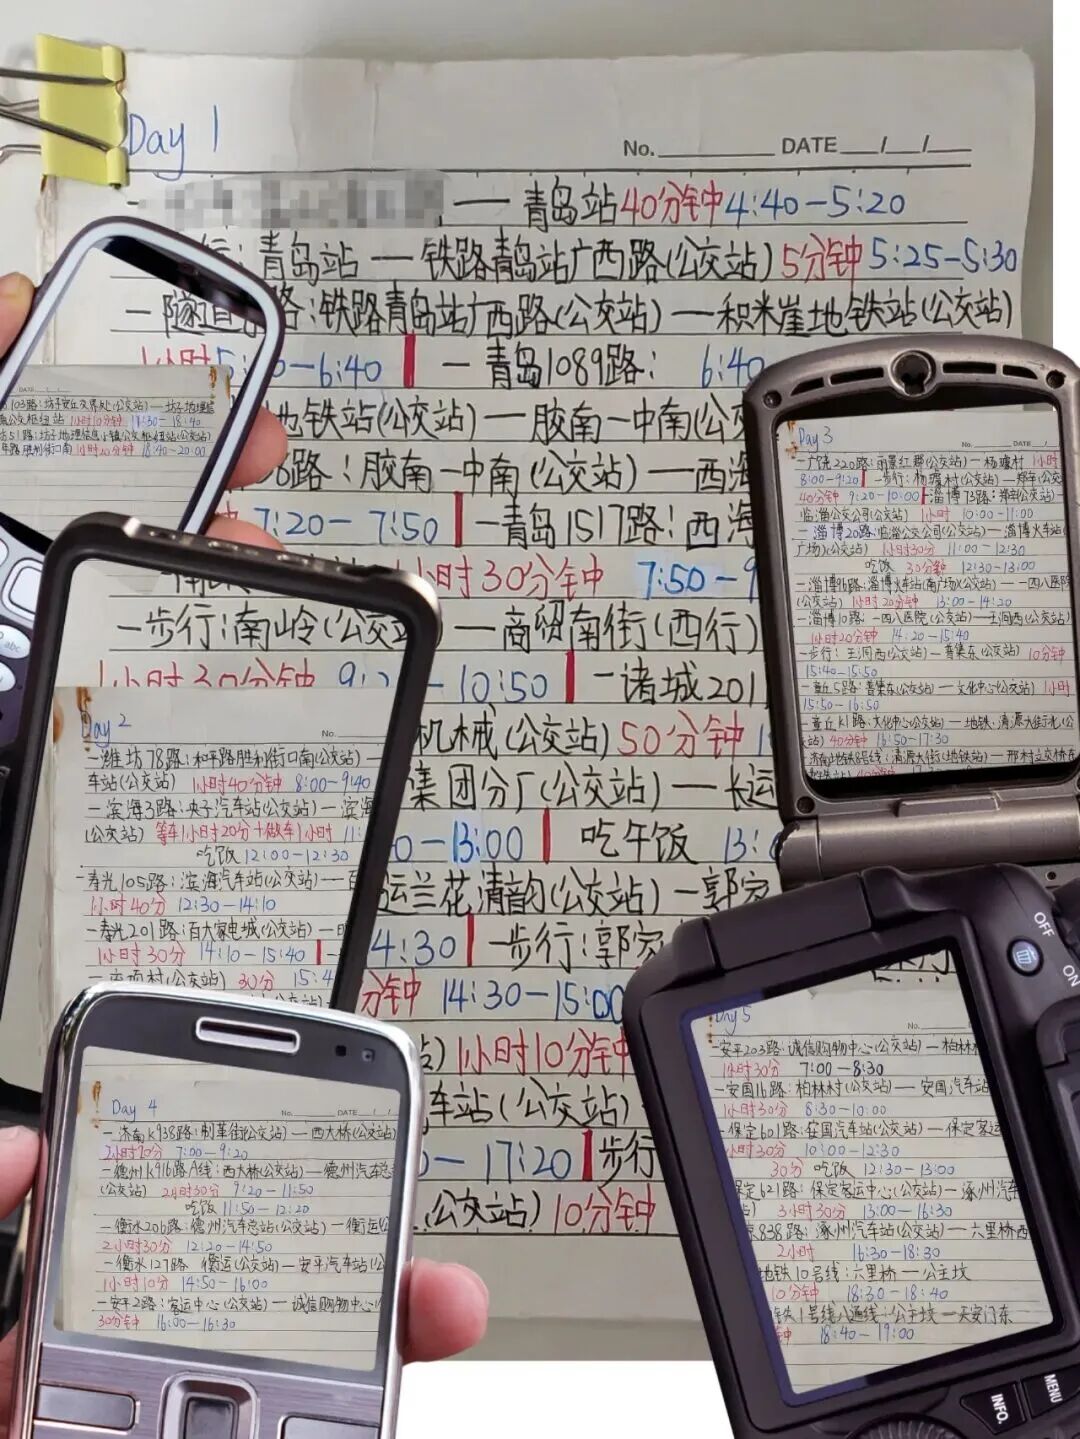 Day 1
No. DATE / /
— 青岛站 40分钟 4:40—5:20
行: 青岛站 — 铁路青岛站广西路(公交站) 5分钟 5:25—5:30
— 隧道 路:铁路青岛站广西路(公交站) — 积米崖地铁站(公交站)
1小时 —6:40 — 青岛1089路: 6:40
地铁站(公交站) — 胶南一中南(公交
路:胶南一中南(公交站) — 西海
7:20—7:50 — 青岛1517路:西海
小时30分钟 7:50—9
— 步行:南岭(公交站) — 商贸南街(西行)
1小时30分钟 —10:50 — 诸城201
机械(公交站) 50分钟
集团分厂(公交站) — 长运
—13:00 吃午饭 13:
运兰花清韵(公交站) — 郭家
4:30 — 步行:郭家
分钟 14:30—15:00
1小时10分钟
车站(公交站)
—17:20 步行
(公交站) 10分钟
DATE / /
103路:坊子安丘交界处(公交站) — 坊子地理信
公交枢纽站 1小时10分钟 17:30—18:40
51路:坊子地理信息小镇公交枢纽站(公交站)
路胜利街口南 1小时20分钟 18:40—20:00
Day 2
No.
— 潍坊78路:和平路胜利街口南(公交站) —
车站(公交站) 1小时40分钟 8:00—9:40
— 滨海3路:央子汽车站(公交站) — 滨海
(公交站) 等车1小时20分+做车1小时 11:
吃饭 12:00—12:30
— 寿光105路:滨海汽车站(公交站) — 百
1小时40分 12:30—14:10
— 寿光201路:百大家电城(公交站) —
1小时30分 14:10—15:40
村(公交站) 30分 15:4
Day 3
No. DATE /
— 广饶220路:丽景红郡(公交站) — 杨瓒村 1小时
8:00—9:20 — 步行:杨瓒村(公交站) — 郑辛(公交
40分钟 9:20—10:00 淄博73路:郑辛(公交站) —
临淄公交公司(公交站) 1小时 10:00—11:00
— 淄博20路:临淄公交公司(公交站) — 淄博火车站(
广场)(公交站) 1小时30分 11:00—12:30
吃饭 30分钟 12:30—13:00
— 淄博96路:淄博火车站(南广场)(公交站) — 一四八医院
(公交站) 1小时20分钟 13:00—14:20
— 淄博10路:一四八医院(公交站) — 王洞西(公交站)
1小时20分钟 14:20—15:40
— 步行:王洞西(公交站) — 普集东(公交站) 10分钟
15:40—15:50
— 章丘5路:普集东(公交站) — 文化中心(公交站) 1小时
15:50—16:50
— 章丘K1路:文化中心(公交站) — 地铁:清源大街北(公
交站) 40分钟 16:50—17:30
— 济南地铁8号线:清源大街(地铁站) — 邢村立交桥东
Day 4
No. DATE / /
— 济南K938路:制革街(公交站) — 西大桥(公交站)
2小时20分 7:00—9:20
— 德州K916路A线:西大桥(公交站) — 德州汽车总
(公交站) 2小时30分 9:20—11:50
吃饭 11:50—12:20
— 衡水206路:德州汽车总站(公交站) — 衡运(公
2小时30分 12:20—14:50
— 衡水127路 衡运(公交站) — 安平汽车站(公
1小时10分 14:50—16:00
— 安平2路:客运中心(公交站) — 诚信购物中心
30分钟 16:00—16:30
Day 5
No.
— 安平203路:诚信购物中心(公交站) — 柏林村
1小时30分 7:00—8:30
— 安国16路:柏林村(公交站) — 安国汽车站
1小时30分 8:30—10:00
— 保定601路:安国汽车站(公交站) — 保定客运
小时30分 10:00—12:30
30分 吃饭 12:30—13:00
保定621路:保定客运中心(公交站) — 涿州汽车
3小时30分 13:00—16:30
838路:涿州汽车站(公交站) — 六里桥西
2小时 16:30—18:30
地铁10号线:六里桥 — 公主坟
10分钟 18:30—18:40
铁1号线八通线:公主坟 — 天安门东
钟 18:40—19:00
OFF
ON
INFO.
MENU
abc